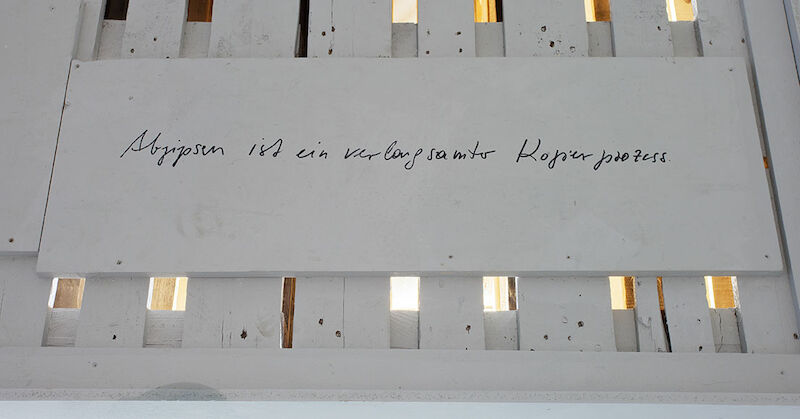 Abgipsen ist ein verlangsamter Kopierprozess.